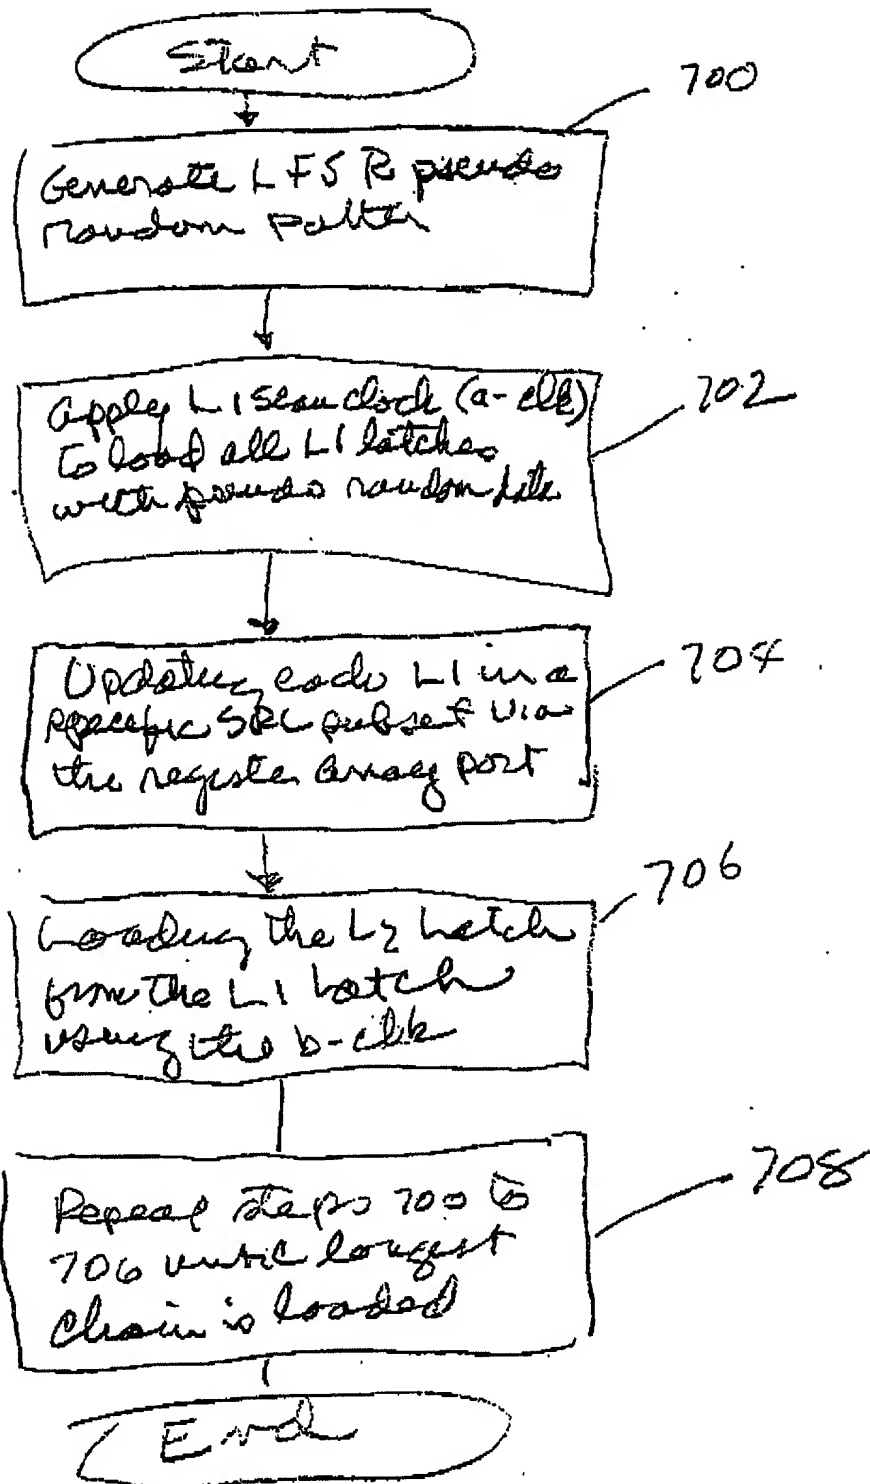 Start
700
Generate LFSR pseudo
random patter
Apply L1 scan clock (a-clk)
to load all L1 latches
with pseudo random data
702
Updating each L1 in a
specific SRL subset via
the register array port
704
Loading the L2 Latch
from the L1 Latch
using the b-clk
706
Repeat steps 700 to
706 until longest
chain is loaded
708
End